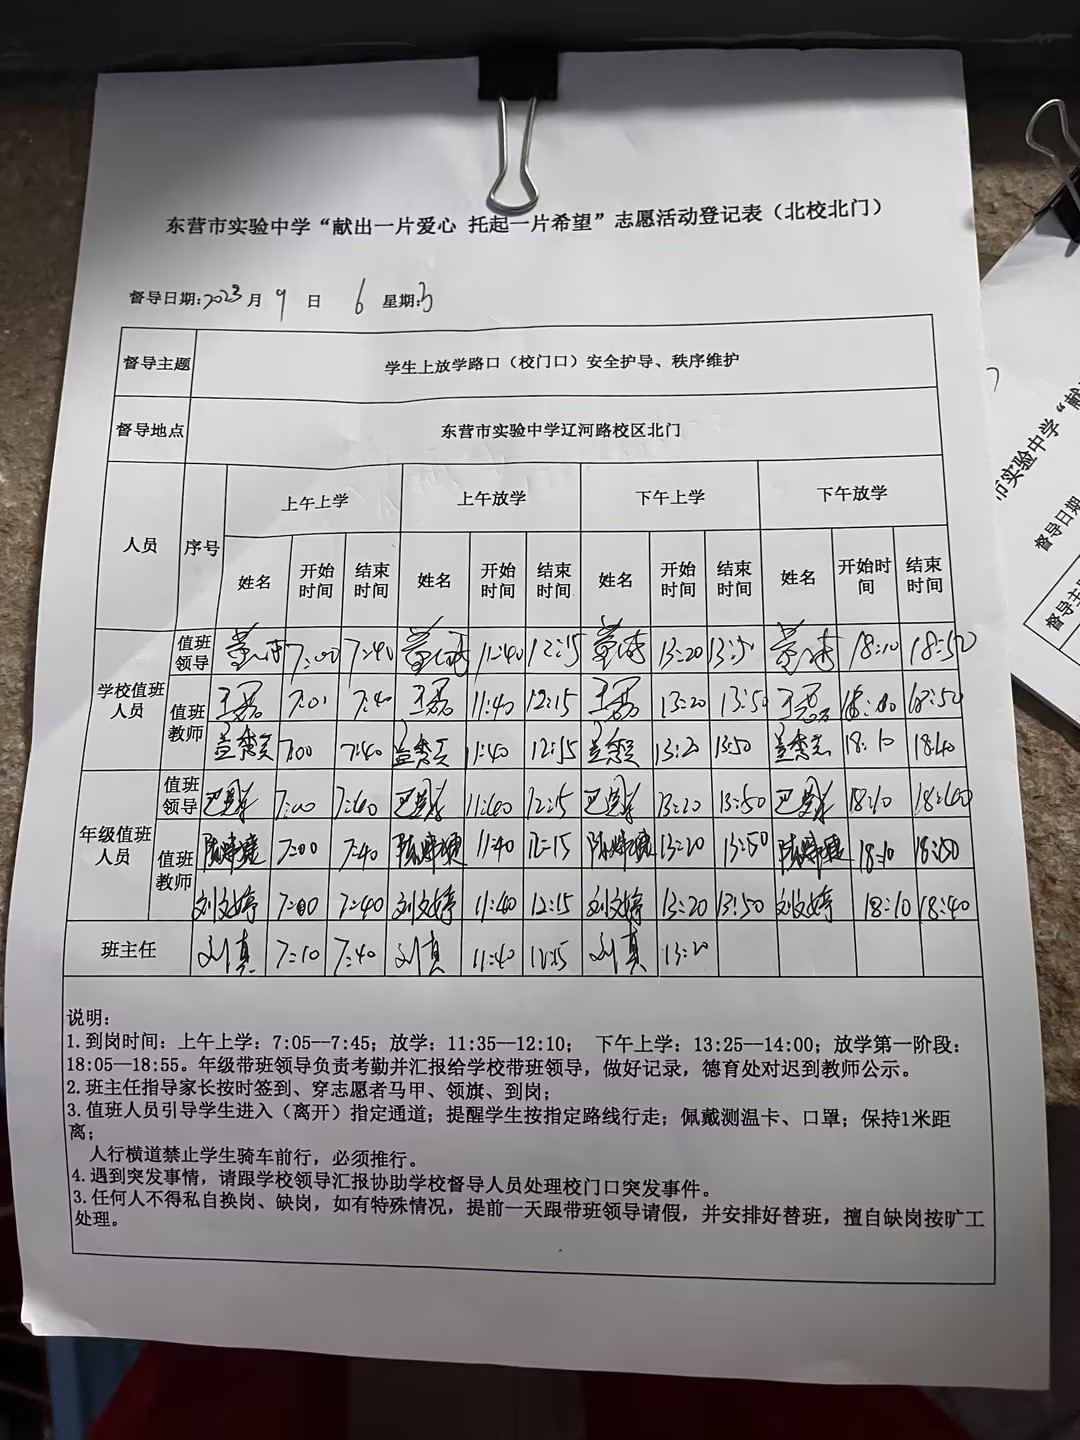 东营市实验中学“献出一片爱心 托起一片希望”志愿活动登记表（北校北门）
督导日期:2023月 9 日 6 星期:3
督导主题 学生上放学路口（校门口）安全护导、秩序维护
督导地点 东营市实验中学辽河路校区北门
人员 序号 上午上学 上午放学 下午上学 下午放学
姓名 开始时间 结束时间 姓名 开始时间 结束时间 姓名 开始时间 结束时间 姓名 开始时间 结束时间
学校值班人员 值班领导 7:00 7:40 11:40 12:15 13:20 18:10 18:50
值班教师 王磊 7:01 7:40 王磊 11:40 12:15 王磊 13:20 13:50 王磊 18:10 18:50
7:00 7:40 11:40 12:15 13:20 13:50 18:10 18:40
年级值班人员 值班领导 7:00 7:40 11:40 12:15 13:20 13:50 18:10 18:40
值班教师 7:00 7:40 11:40 12:15 13:20 13:50 18:10 18:50
刘文婷 7:00 7:40 刘文婷 11:40 12:15 刘文婷 13:20 13:50 刘文婷 18:10 18:40
班主任 刘真 7:10 7:40 刘真 11:40 12:15 刘真 13:20
说明:
1.到岗时间：上午上学：7:05--7:45；放学：11:35--12:10； 下午上学：13:25--14:00；放学第一阶段：
18:05—18:55。年级带班领导负责考勤并汇报给学校带班领导，做好记录，德育处对迟到教师公示。
2.班主任指导家长按时签到、穿志愿者马甲、领旗、到岗；
3.值班人员引导学生进入（离开）指定通道；提醒学生按指定路线行走；佩戴测温卡、口罩；保持1米距
离；
人行横道禁止学生骑车前行，必须推行。
4.遇到突发事情，请跟学校领导汇报协助学校督导人员处理校门口突发事件。
3.任何人不得私自换岗、缺岗，如有特殊情况，提前一天跟带班领导请假，并安排好替班，擅自缺岗按旷工
处理。
市实验中学“献
督导日期
督导主